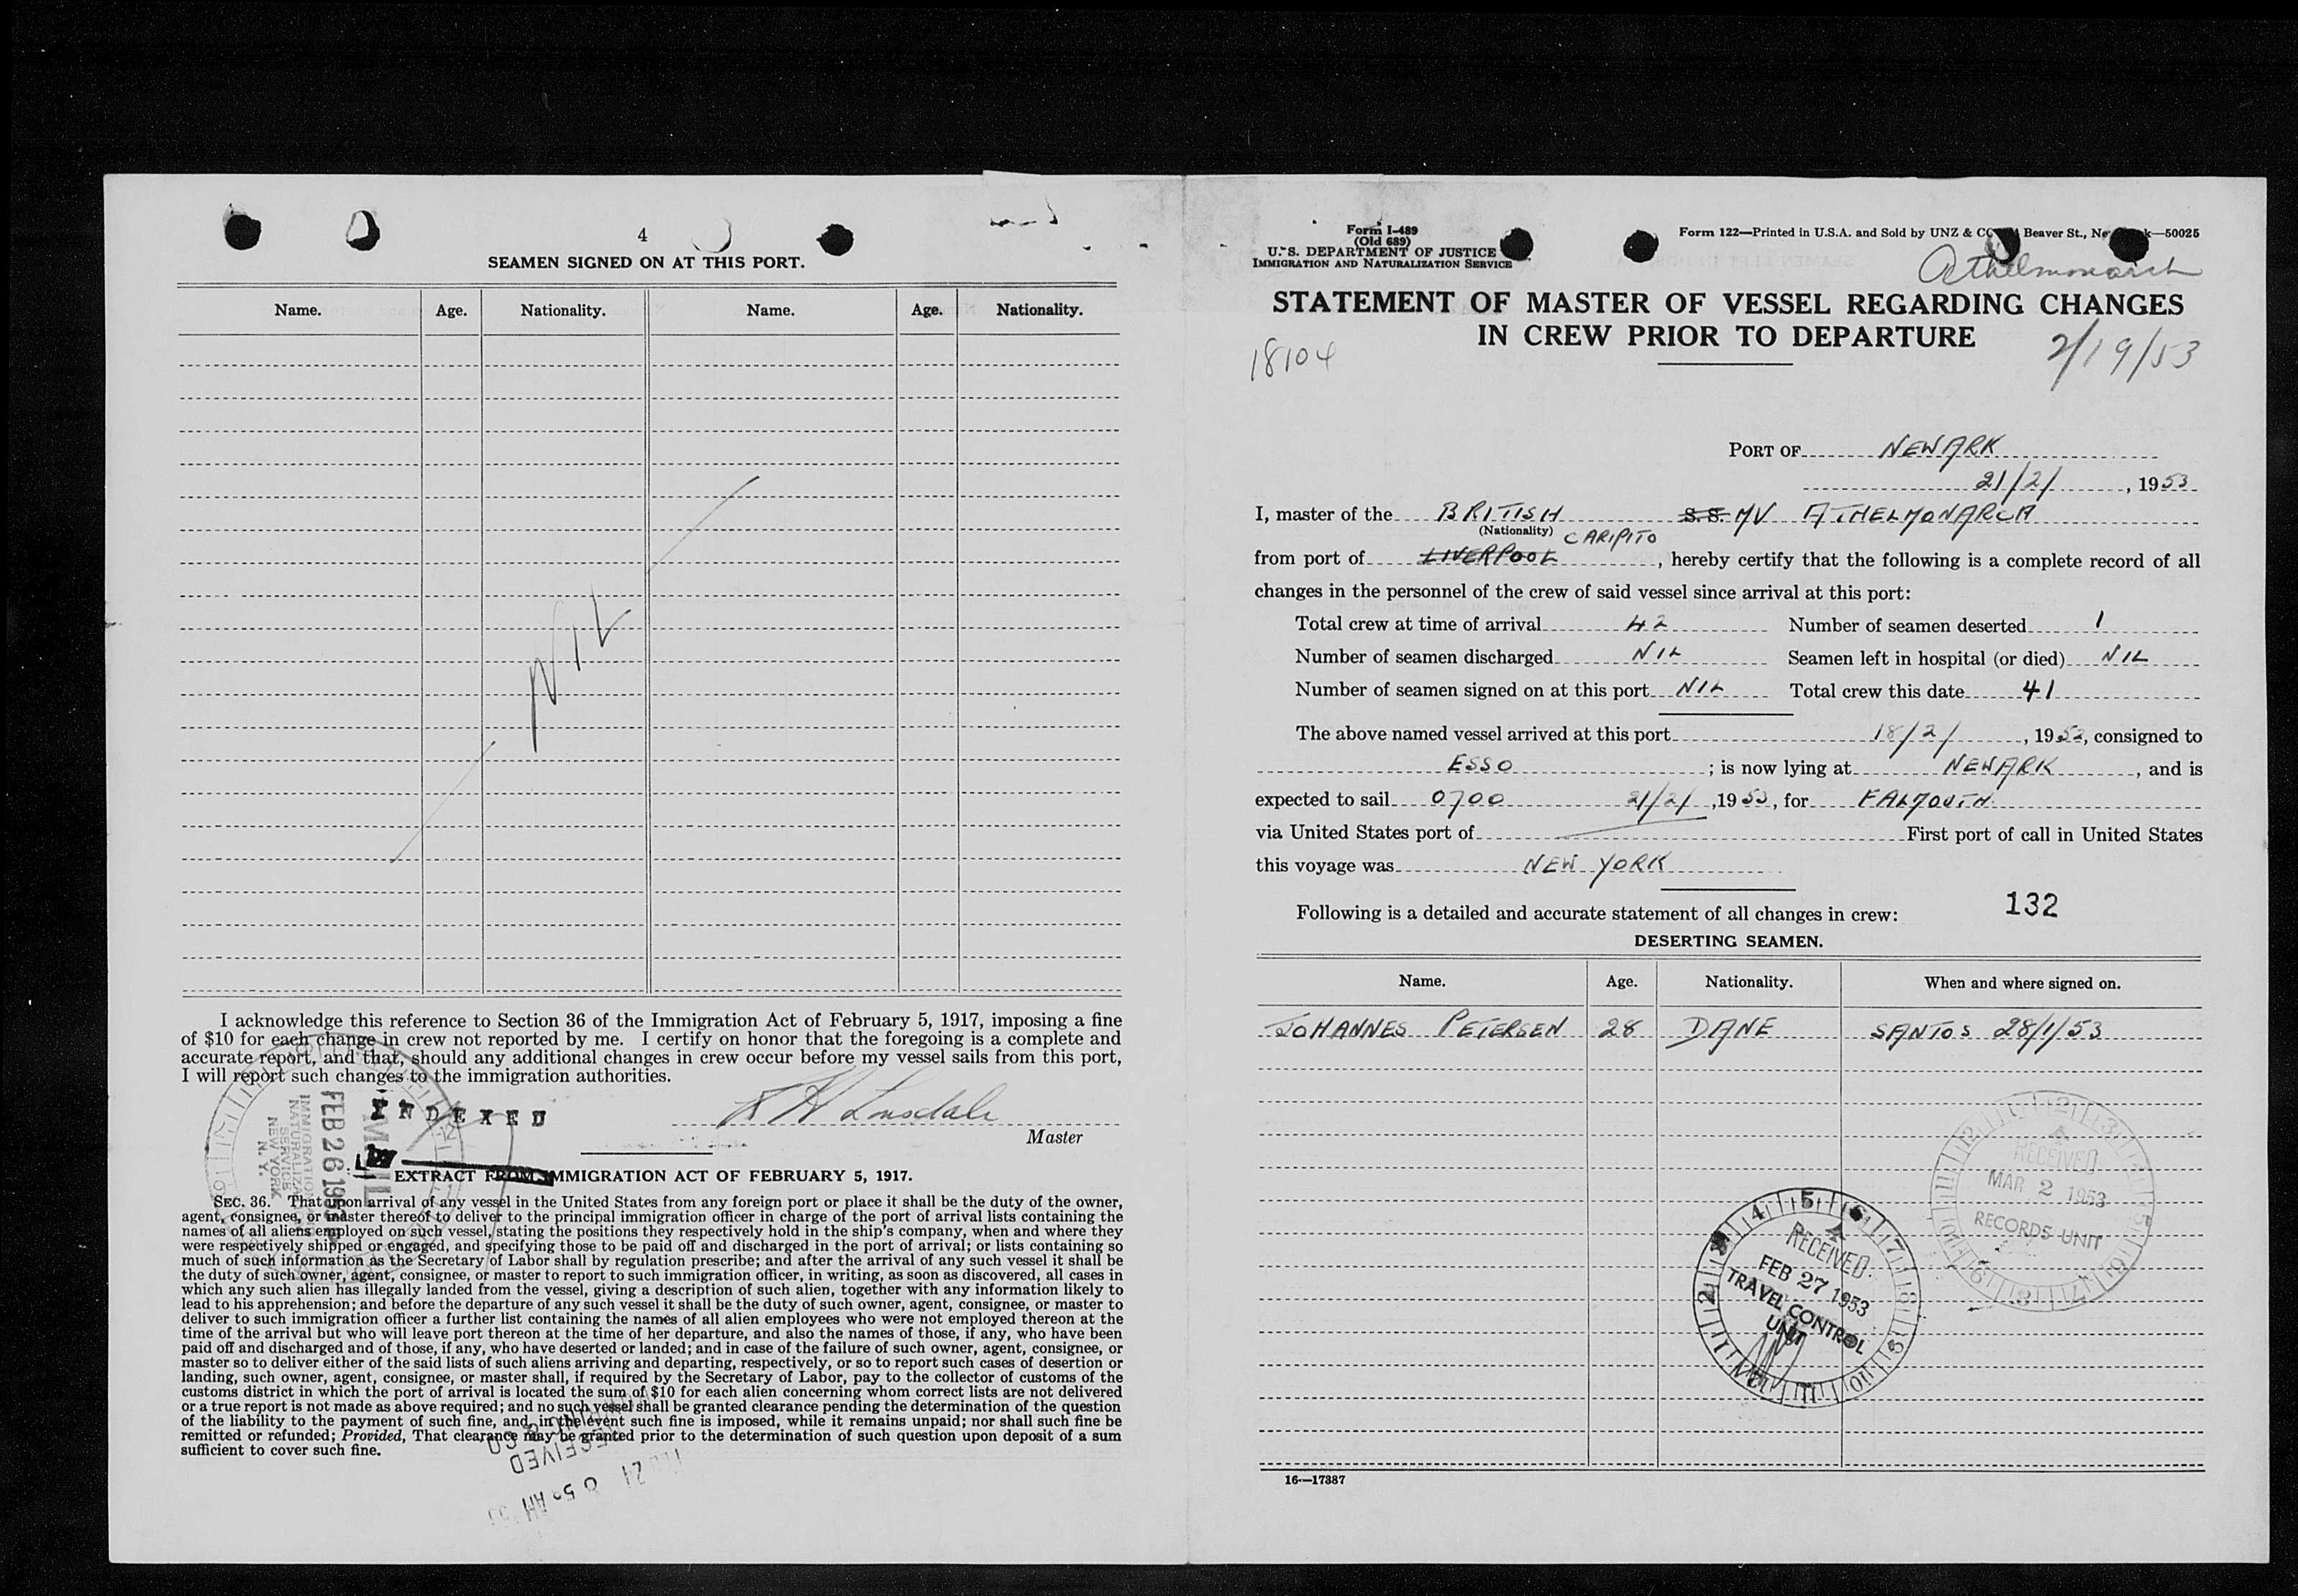 4
SEAMEN SIGNED ON AT THIS PORT.
Name. Age. Nationality. Name. Age. Nationality.
NIL
I acknowledge this reference to Section 36 of the Immigration Act of February 5, 1917, imposing a fine
of $10 for each change in crew not reported by me. I certify on honor that the foregoing is a complete and
accurate report, and that, should any additional changes in crew occur before my vessel sails from this port,
I will report such changes to the immigration authorities.
INDEXED
Lonsdale
Master
MAIL
FEB 26 1953
IMMIGRATION
NATURALIZATION
SERVICE
NEW YORK
N. Y.
EXTRACT FROM IMMIGRATION ACT OF FEBRUARY 5, 1917.
SEC. 36. That upon arrival of any vessel in the United States from any foreign port or place it shall be the duty of the owner,
agent, consignee, or master thereof to deliver to the principal immigration officer in charge of the port of arrival lists containing the
names of all aliens employed on such vessel, stating the positions they respectively hold in the ship's company, when and where they
were respectively shipped or engaged, and specifying those to be paid off and discharged in the port of arrival; or lists containing so
much of such information as the Secretary of Labor shall by regulation prescribe; and after the arrival of any such vessel it shall be
the duty of such owner, agent, consignee, or master to report to such immigration officer, in writing, as soon as discovered, all cases in
which any such alien has illegally landed from the vessel, giving a description of such alien, together with any information likely to
lead to his apprehension; and before the departure of any such vessel it shall be the duty of such owner, agent, consignee, or master to
deliver to such immigration officer a further list containing the names of all alien employees who were not employed thereon at the
time of the arrival but who will leave port thereon at the time of her departure, and also the names of those, if any, who have been
paid off and discharged and of those, if any, who have deserted or landed; and in case of the failure of such owner, agent, consignee, or
master so to deliver either of the said lists of such aliens arriving and departing, respectively, or so to report such cases of desertion or
landing, such owner, agent, consignee, or master shall, if required by the Secretary of Labor, pay to the collector of customs of the
customs district in which the port of arrival is located the sum of $10 for each alien concerning whom correct lists are not delivered
or a true report is not made as above required; and no such vessel shall be granted clearance pending the determination of the question
of the liability to the payment of such fine, and, in the event such fine is imposed, while it remains unpaid; nor shall such fine be
remitted or refunded; Provided, That clearance may be granted prior to the determination of such question upon deposit of a sum
sufficient to cover such fine.
RECEIVED
Form I-489
(Old 689)
U. S. DEPARTMENT OF JUSTICE
IMMIGRATION AND NATURALIZATION SERVICE
Form 122—Printed in U.S.A. and Sold by UNZ & CO. Beaver St., 50025
Athelmonarch
STATEMENT OF MASTER OF VESSEL REGARDING CHANGES
IN CREW PRIOR TO DEPARTURE
18104
2/19/53
PORT OF NEWARK
21/2/, 1953
I, master of the BRITISH S.S. MV ATHELMONARCH
(Nationality) CARIPITO
from port of LIVERPOOL, hereby certify that the following is a complete record of all
changes in the personnel of the crew of said vessel since arrival at this port:
Total crew at time of arrival 42 Number of seamen deserted 1
Number of seamen discharged NIL Seamen left in hospital (or died) NIL
Number of seamen signed on at this port NIL Total crew this date 41
The above named vessel arrived at this port 18/2/, 1953, consigned to
ESSO; is now lying at NEWARK, and is
expected to sail 0700 21/2/, 1953, for FALMOUTH
via United States port of First port of call in United States
this voyage was NEW YORK
Following is a detailed and accurate statement of all changes in crew: 132
DESERTING SEAMEN.
Name. Age. Nationality. When and where signed on.
JOHANNES PETERSEN 28 DANE SANTOS 28/1/53
RECEIVED
MAR 2 1953
RECORDS UNIT
RECEIVED
FEB 27 1953
TRAVEL CONTROL
UNIT
16—17387